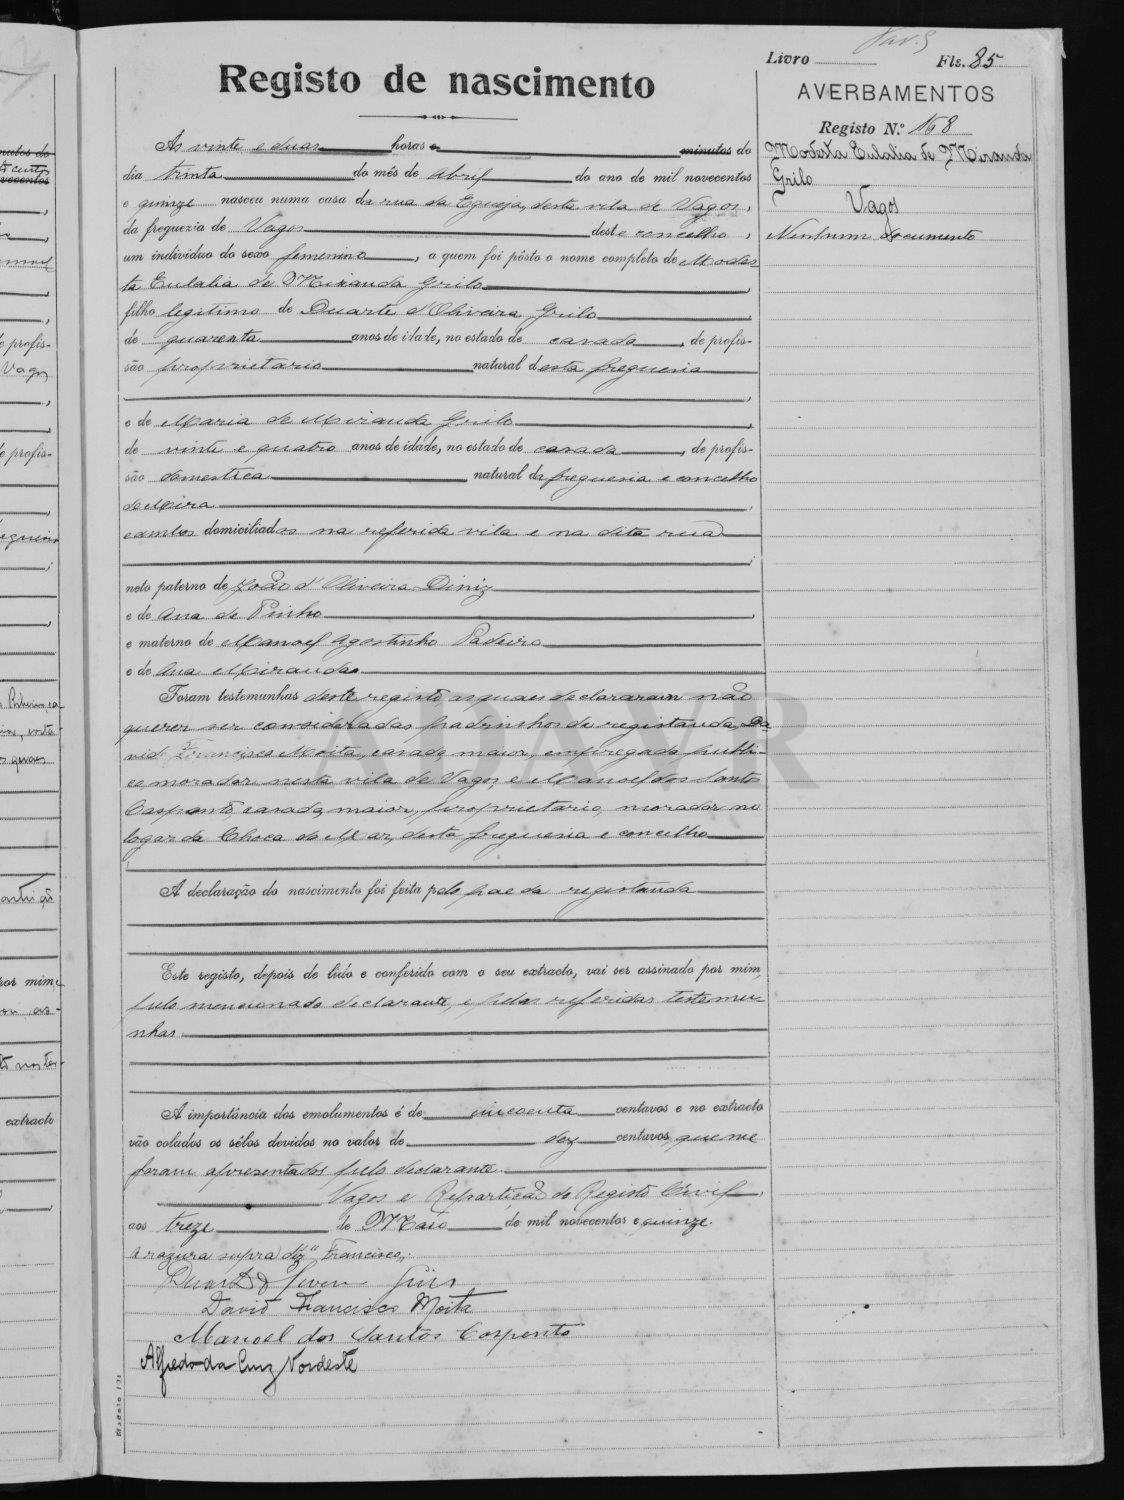 Livro Fls. 85
Registo de nascimento
AVERBAMENTOS
Registo N.º 168
Modesta Eulalia de Miranda
Grilo
Vagos
Nenhum documento
As vinte e duas horas e minutos do
dia trinta do mês de Abril do ano de mil novecentos
e quinze nasceu numa casa da rua da Egreja, desta vila de Vagos,
da freguezia de Vagos deste concelho,
um individuo do sexo femenino, a quem foi pôsto o nome completo de Modes
ta Eulalia de Miranda Grilo
filho legitimo de Duarte d'Oliveira Grilo
de quarenta anos de idade, no estado de casado, de profis-
são proprietario natural desta freguesia
e de Maria de Miranda Grilo
de vinte e quatro anos de idade, no estado de casada, de profis-
são domestica natural da freguesia e concelho
de Mira
e ambos domiciliados na referida vila e na dita rua
neto paterno de João d'Oliveira Diniz
e de Ana de Pinho
e materno de Manoel Agostinho Padeiro
e de Ana Miranda
Foram testemunhas deste registo as quaes declararam não
querer ser consideradas padrinhos da registanda, Da
vid Francisco Moita, casado, maior, empregado publi-
co, morador nesta vila de Vagos, e Manoel dos Santos
Carpento, casado, maior, proprietario, morador no
logar da Choca do Mar, desta freguesia e concelho
A declaração do nascimento foi feita pelo pae da registanda
Este registo, depois de lido e conferido com o seu extracto, vai ser assinado por mim,
pelo mencionado declarante, e pelas referidas testemu
nhas.
A importância dos emolumentos é de cincoenta centavos e no extracto
vão colados os sêlos devidos no valor de dez centavos, que me
foram apresentados pelo declarante.
Vagos e Repartição do Registo Civil,
aos treze de Maio de mil novecentos e quinze.
A razura supra diz "Francisco".
David Francisco Moita
Manoel dos Santos Carpento
Alfredo da Cruz Nordeste
DAVR